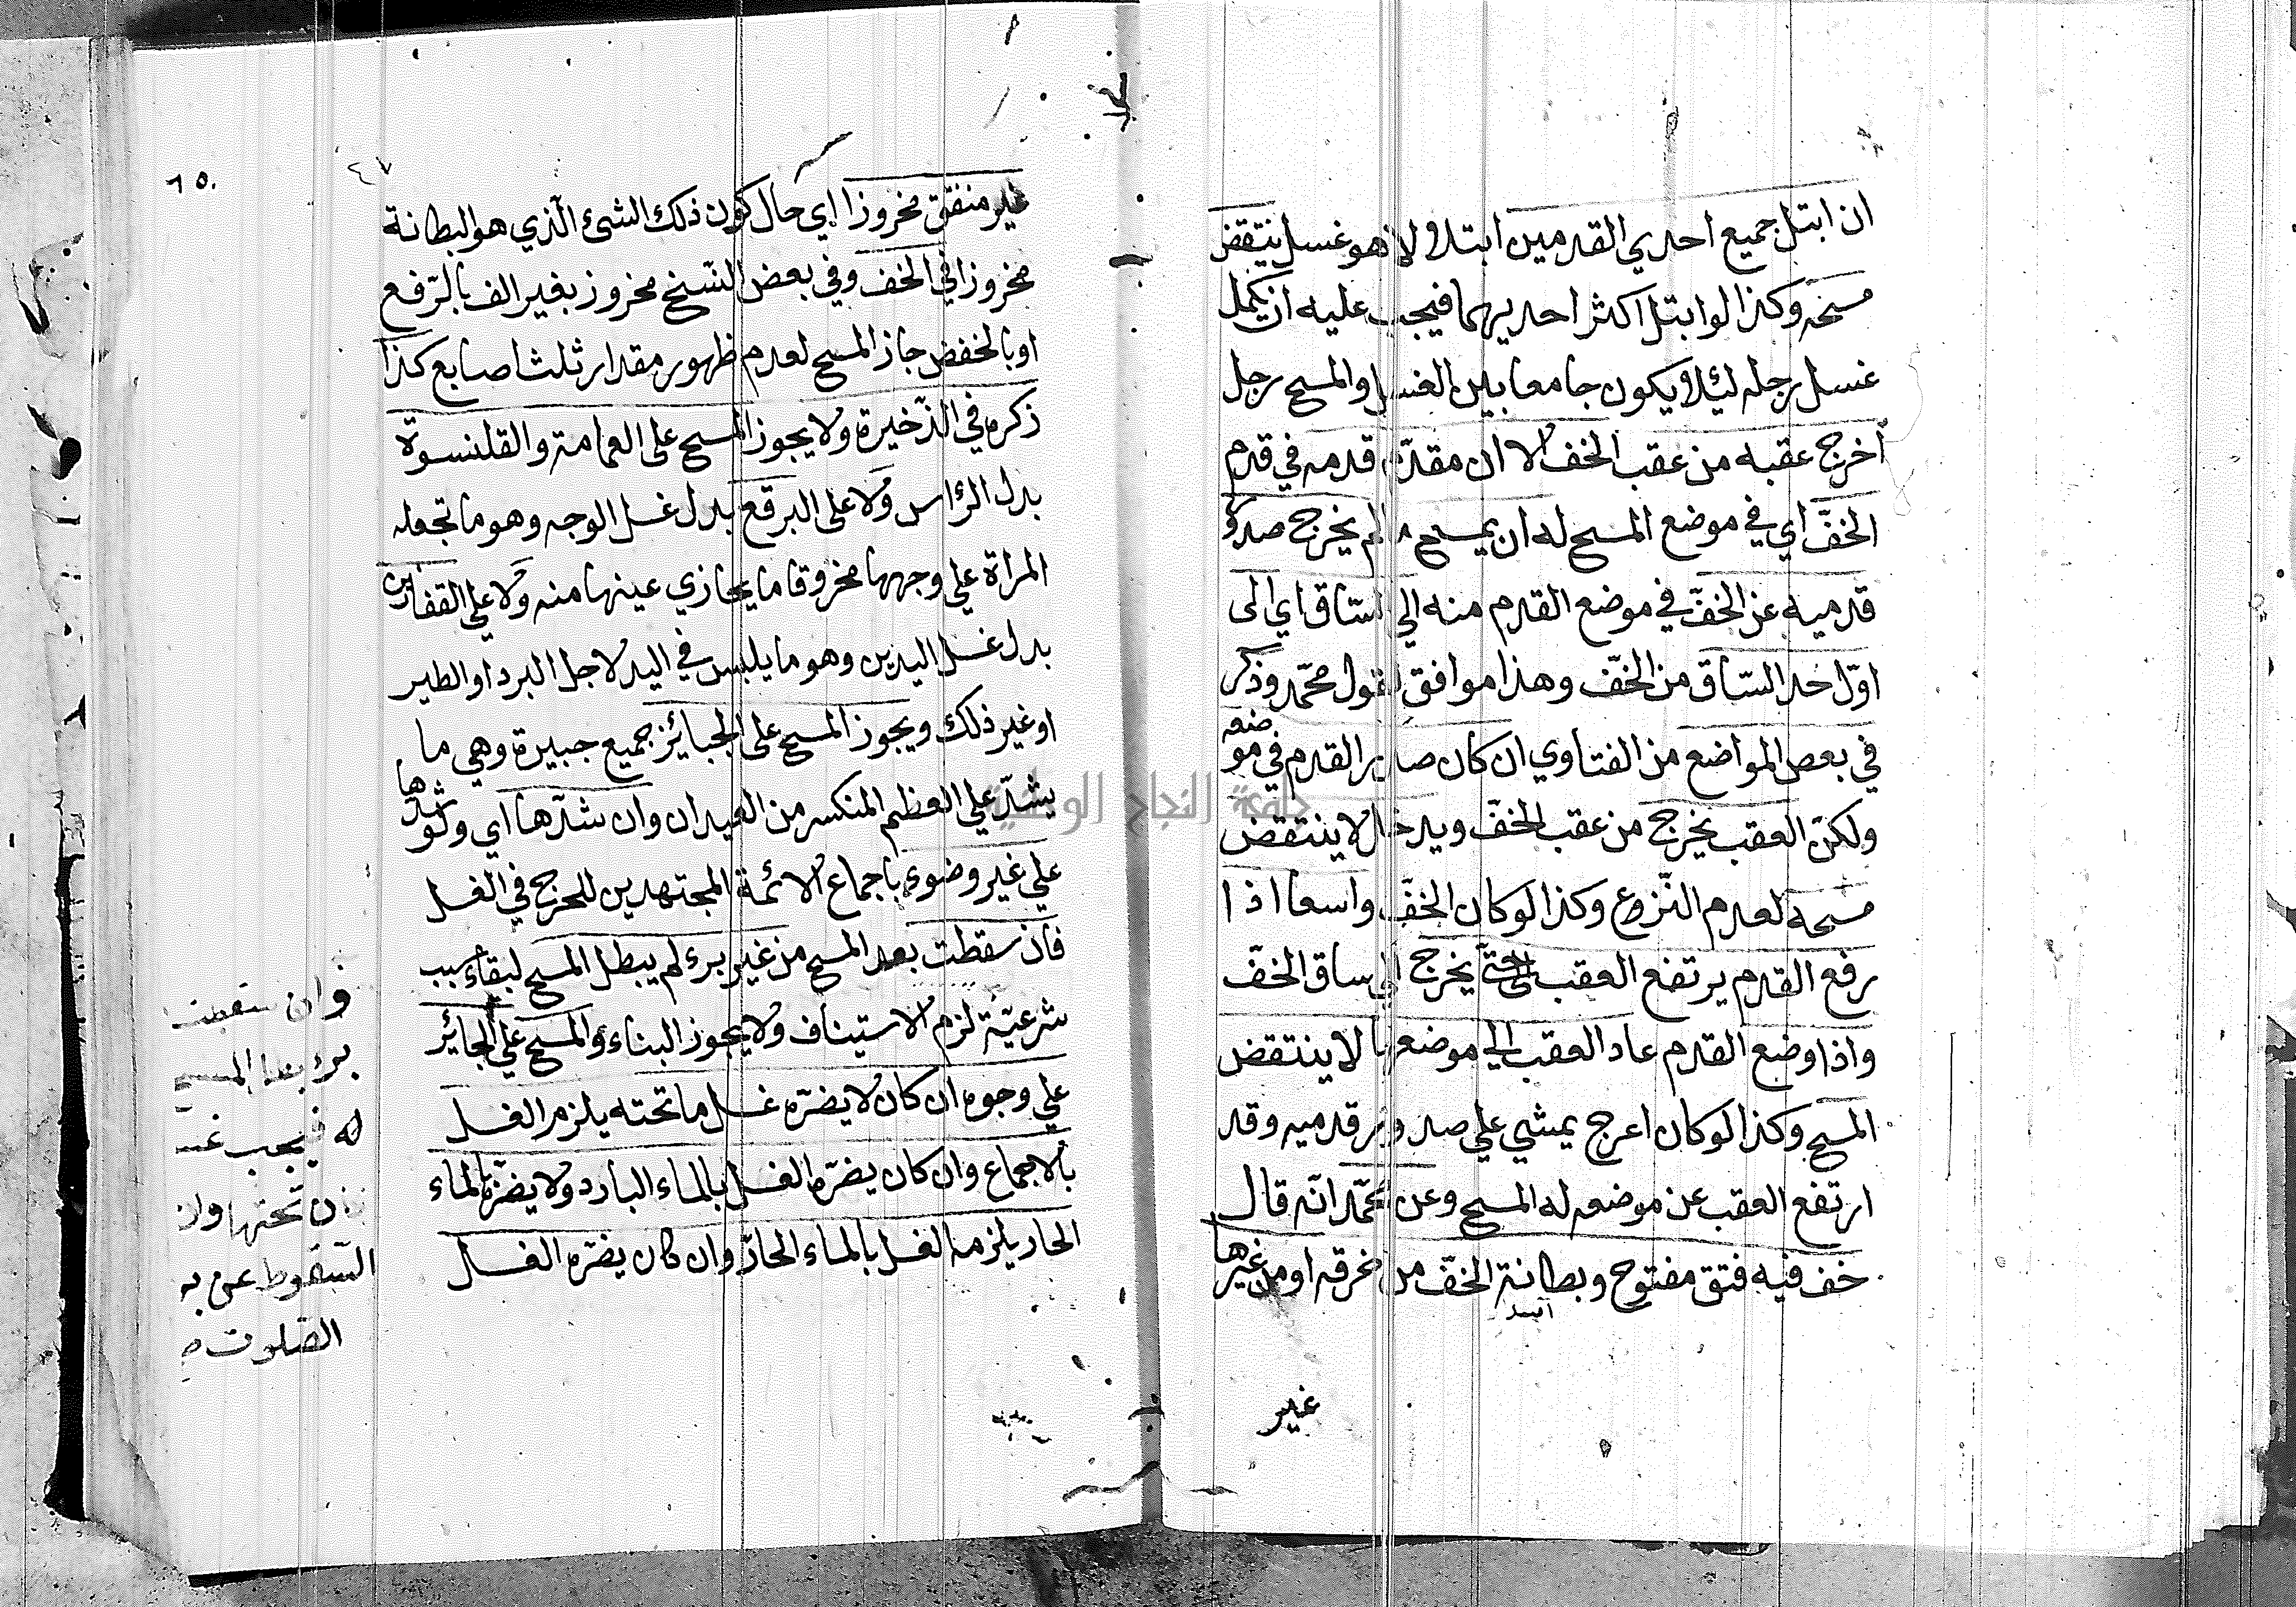 ان ابتل جميع احدي القدمين ابتلالا هو غسل ينتقض
مسحه وكذا لو ابتل اكثر احديهما فيجب عليه ان يكمل
غسل رجله ليئلا يكون جامعا بين الغسل والمسح رجل
اخرج عقبه من عقب الخف الا ان مقدم قدمه في قدم
الخفّ اي في موضع المسح له ان يمسح ما لم يخرج صدور
قدميه عن الخفّ في موضع القدم منه الي الساق اي الى
اوّل حد السّاق من الخفّ وهذا موافق لقول محمّد وذكر
في بعض المواضع من الفتاوي ان كان صدر القدم في موضعه
ولكنّ العقب يخرج من عقب الخفّ ويدخل لا ينتقض
مسحه لعدم النّزوع وكذا لو كان الخفّ واسعا اذا
رفع القدم يرتفع العقب حتّي يخرج الي ساق الخفّ
واذا وضع القدم عاد العقب الي موضعها لا ينتقض
المسح وكذا لو كان اعرج يمشي علي صدور قدميه وقد
ارتفع العقب عن موضعه له المسح وعن محمّد انّه قال
خف فيه فتق مفتوح وبطانة الخفّ من خرقه او من غيرها
غير
٦٥
٤٧
غير منفتق مخروزا اي حال كون ذلك الشئ الّذي هو البطانة
مخروزا في الخف وفي بعض النّسخ مخروز بغير الف بالرّفع
او بالخفض جاز المسح لعدم ظهور مقدار ثلث اصابع كذا
ذكره في الذّخيرة ولا يجوز المسح على العمامة والقلنسوة
بدل الرّاس ولا على البرقع بدل غسل الوجه وهو ما تجعله
المراة علي وجهها مخروقا ما يحاذي عينها منه ولا علي القفازين
بدل غسل اليدين وهو ما يلبس في اليد لاجل البرد او الطير
او غير ذلك ويجوز المسح على الجبائر جميع جبيرة وهي ما
يشدّ علي العظم المنكسر من العيدان وان شدّها اي ولو شدها
علي غير وضوء باجماع الائمة المجتهدين للحرج في الغسل
فان سقطت بعد المسح من غير برء لم يبطل المسح لبقاء سبب
شرعيّته لزم الاستيناف ولا يجوز البناء والمسح علي الجبائر
علي وجوه ان كان لا يضرّه غسل ما تحته يلزم الغسل
بالاجماع وان كان يضرّه الغسل بالماء البارد ولا يضرّه بالماء
الحار يلزمه الغسل بالماء الحارّ وان كان يضرّه الغسل
وان سقطت
برء بعد المسح
له فيجب غسـ
تحتها وان
السّقوط عن بر
الصّلوت
جامعة النجاح الوطنية